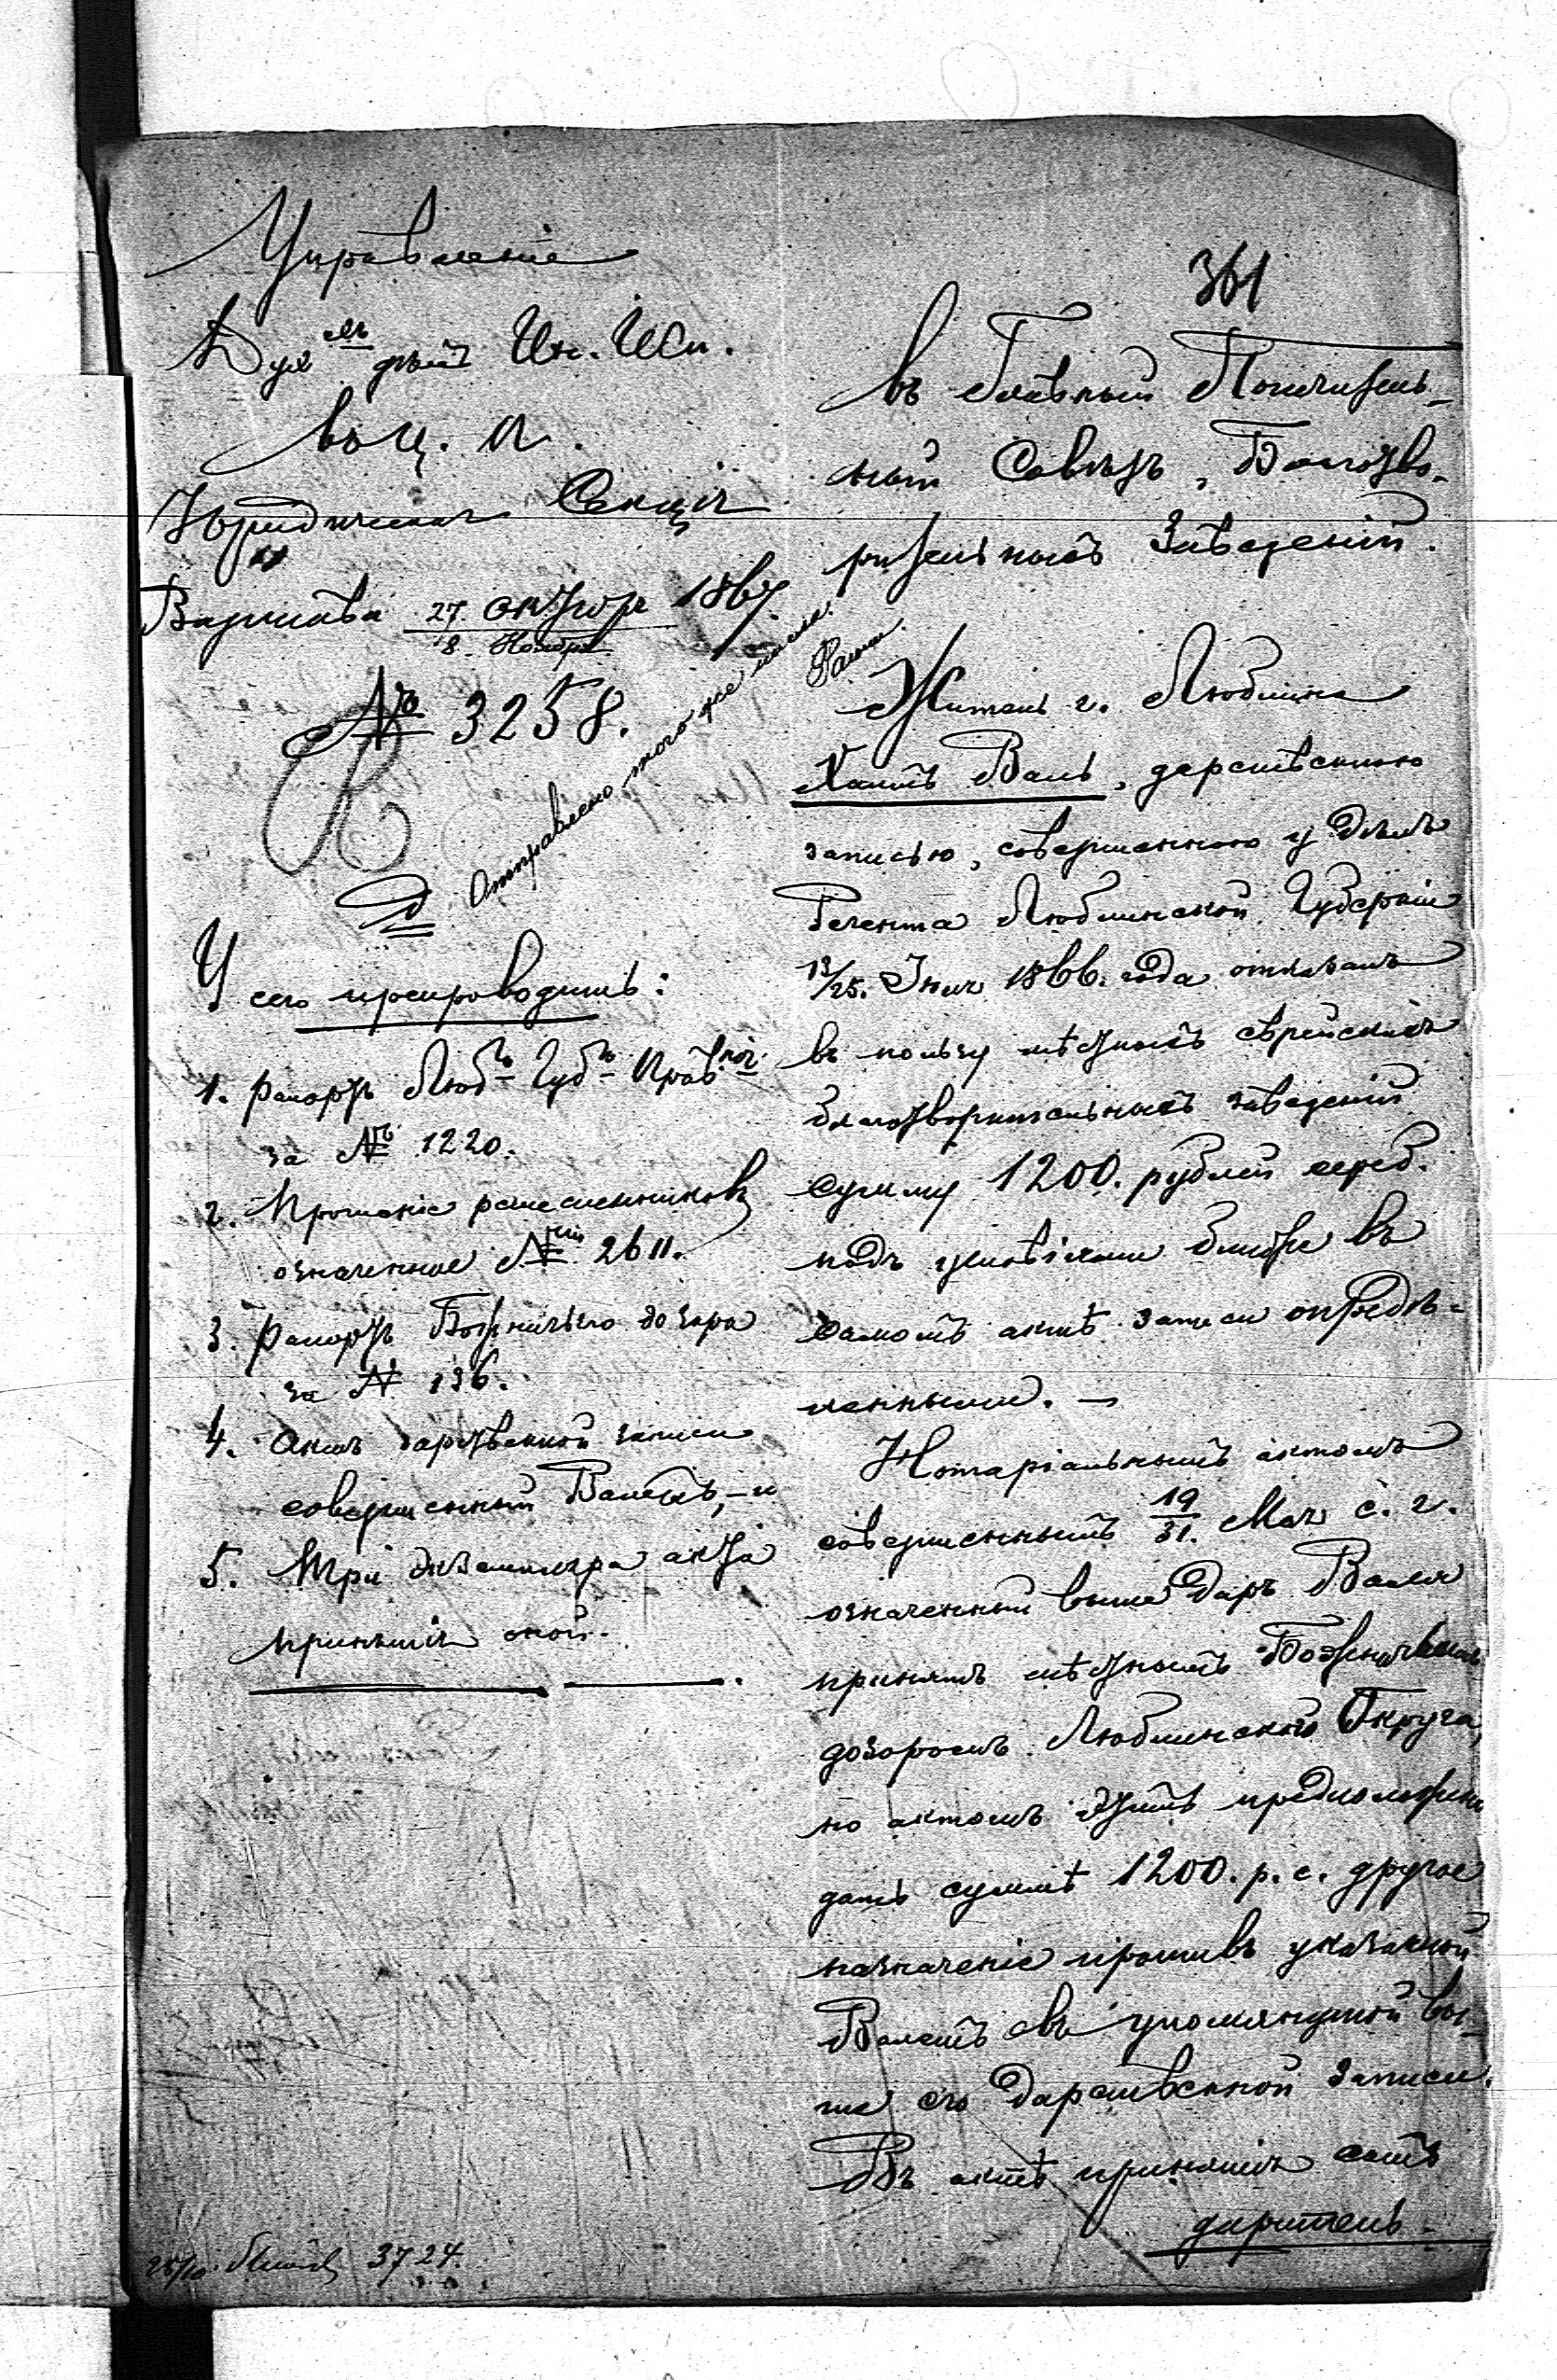 361
Управленіе
Дух ыхъ дѣлъ Ин. Исп.
въ Ц. П.
Юридическая Секція
Варшава 27 Октября 1867
8 Ноября
№ 3258.
Отправлено того же числа
У сего препроводить:
1. Рапортъ Люб. Губ. Прав.
за № 1220.
2. Прошеніе ремесленниковъ
означенное № 2611.
3. Рапортъ Божничьяго дозора
за № 136.
4. Актъ дарственной записи
совершенный Валемъ, – и
5. Три экземпляра акта
принятія оной.
Въ Главный Попечитель-
ный Совѣтъ, Благотво-
рительныхъ Заведеній.
Житель г. Люблина
Хаимъ Валь, дарственною
записью, совершенною у
Регента Люблинской Губерніи
13/25. 1866. года отказалъ
въ пользу мѣстныхъ еврейскихъ
благотворительныхъ заведеній
сумму 1200. рублей сереб.
подъ условіями ближе въ
самомъ актѣ записи опредѣ-
ленными. –
Нотаріальнымъ актомъ
совершеннымъ 19/31. Мая с. г.
означенный выше даръ Валя
принятъ мѣстнымъ Божничьимъ
дозоромъ Люблинскаго Округа,
но актомъ этимъ предположено
дать суммѣ 1200. р. с. другое
назначеніе противъ указанной
Валемъ въ упомянутой вы-
ше его дарственной записи.
Въ актѣ принятія самъ
даритель
3724.